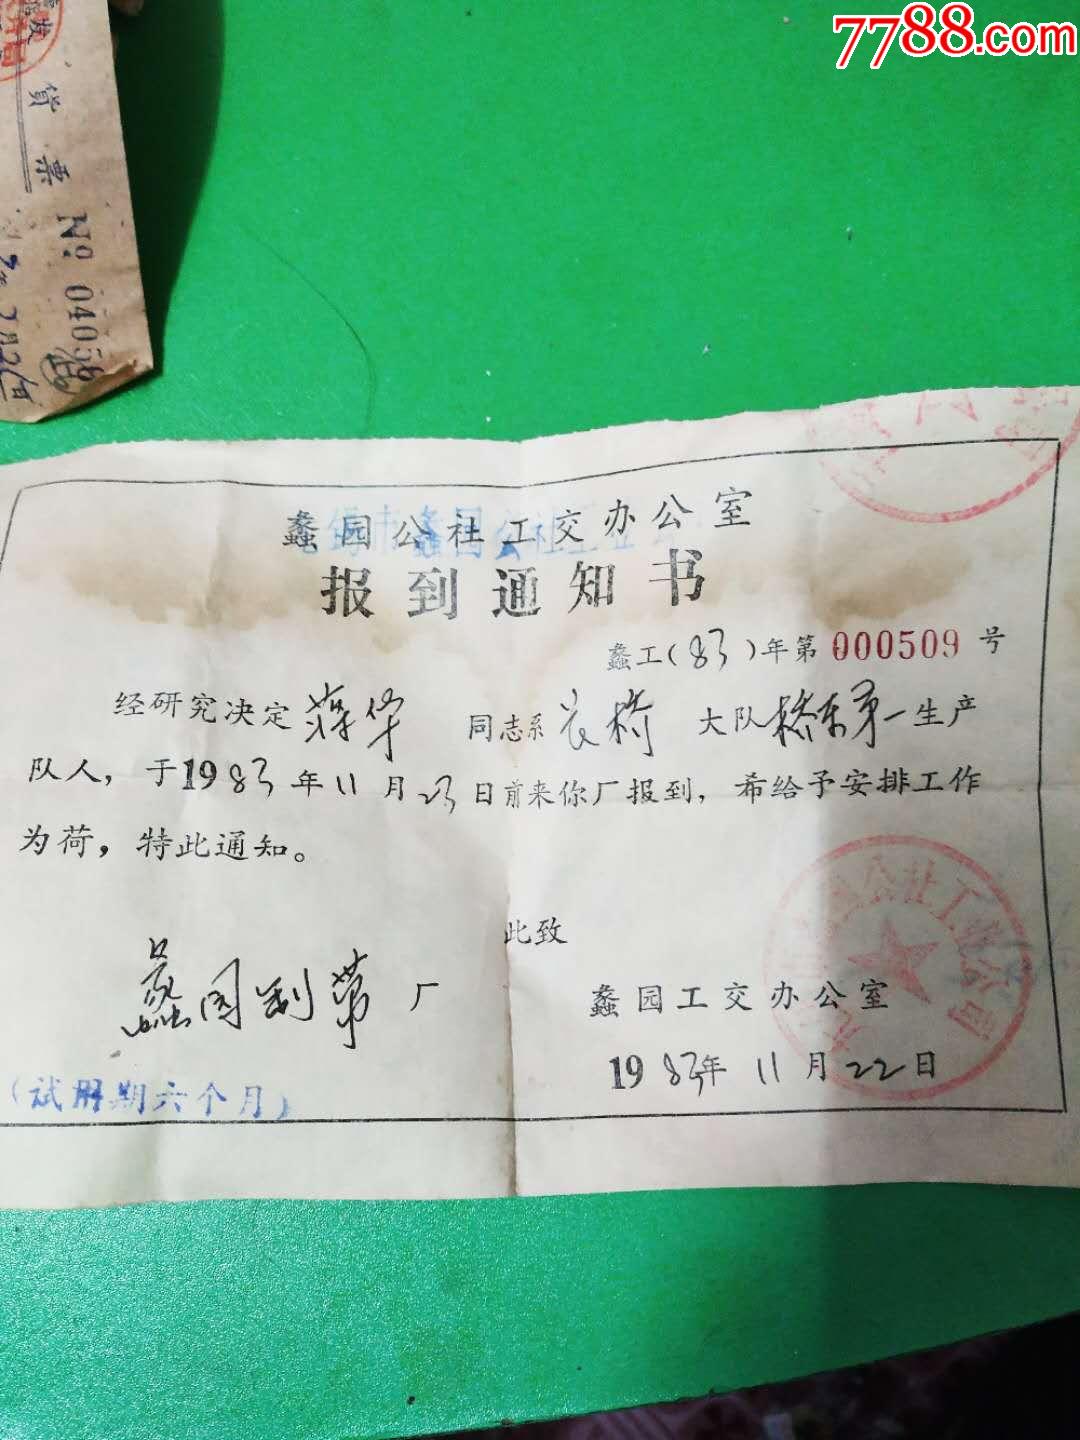 7788.com
貨票
№ 04056
蠡园公社工交办公室
报到通知书
蠡工(83)年第000509号
经研究决定 蒋华 同志系 长桥 大队 桥东第一生产
队人，于1983年11月23日前来你厂报到，希给予安排工作
为荷，特此通知。
此致
蠡园制带厂
蠡园工交办公室
1983年11月22日
(试用期六个月)